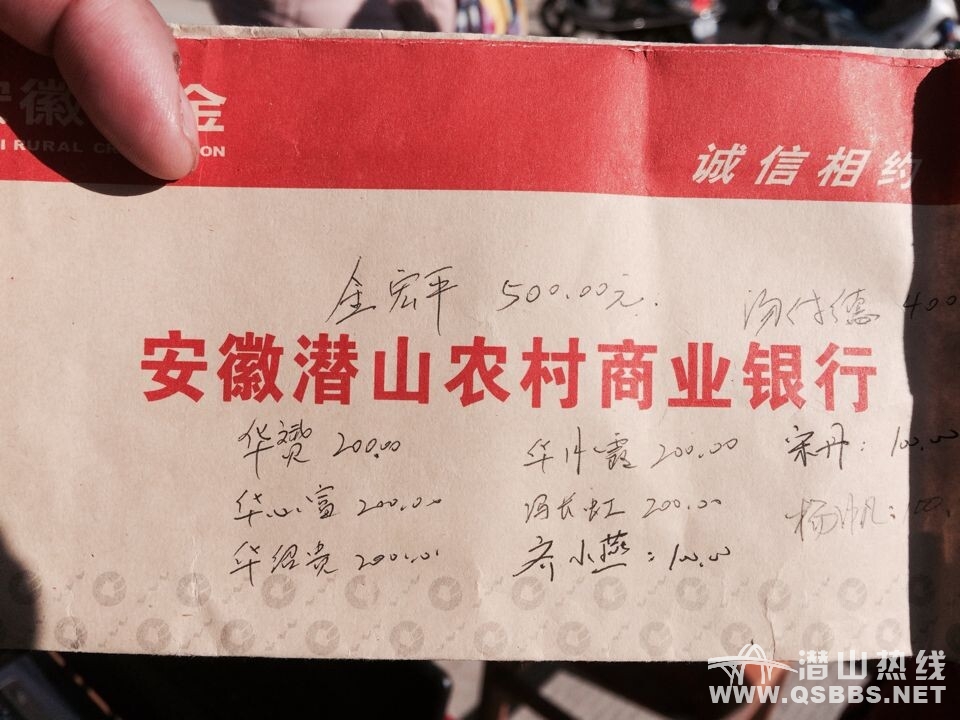 安徽 金
I RURAL CR ON
诚信相约
金宏平 500.00元. 汤传德 400
安徽潜山农村商业银行
华赟 200.00 华小霞 200.00 宋丹: 100.00
华心富 200.00 冯长虹 200.00 杨帆: 100.
华绍贵 200.00 齐小燕: 100.00
潜山热线
WWW.QSBBS.NET